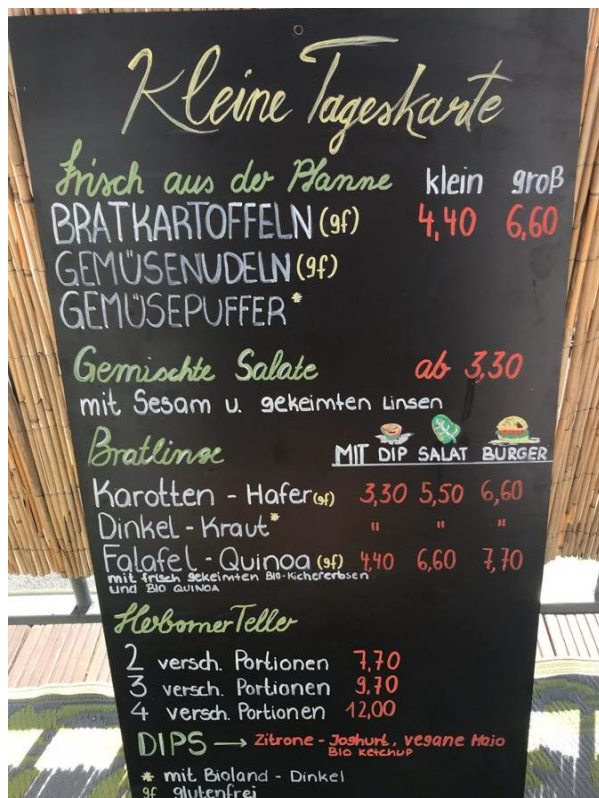 Kleine Tageskarte
Frisch aus der Pfanne klein groß
BRATKARTOFFELN (gf) 4,40 6,60
GEMÜSENUDELN (gf)
GEMÜSEPUFFER*
Gemischte Salate ab 3,30
mit Sesam u. gekeimten Linsen
Bratlinge MIT DIP SALAT BURGER
Karotten - Hafer (gf) 3,30 5,50 6,60
Dinkel - Kraut* " " "
Falafel - Quinoa (gf) 4,40 6,60 7,70
mit frisch gekeimten BIO-Kichererbsen
und BIO QUINOA
Herborner Teller
2 versch. Portionen 7,70
3 versch. Portionen 9,70
4 versch. Portionen 12,00
DIPS → Zitrone - Joghurt, vegane Maio
BIO Ketchup
* mit Bioland - Dinkel
gf glutenfrei